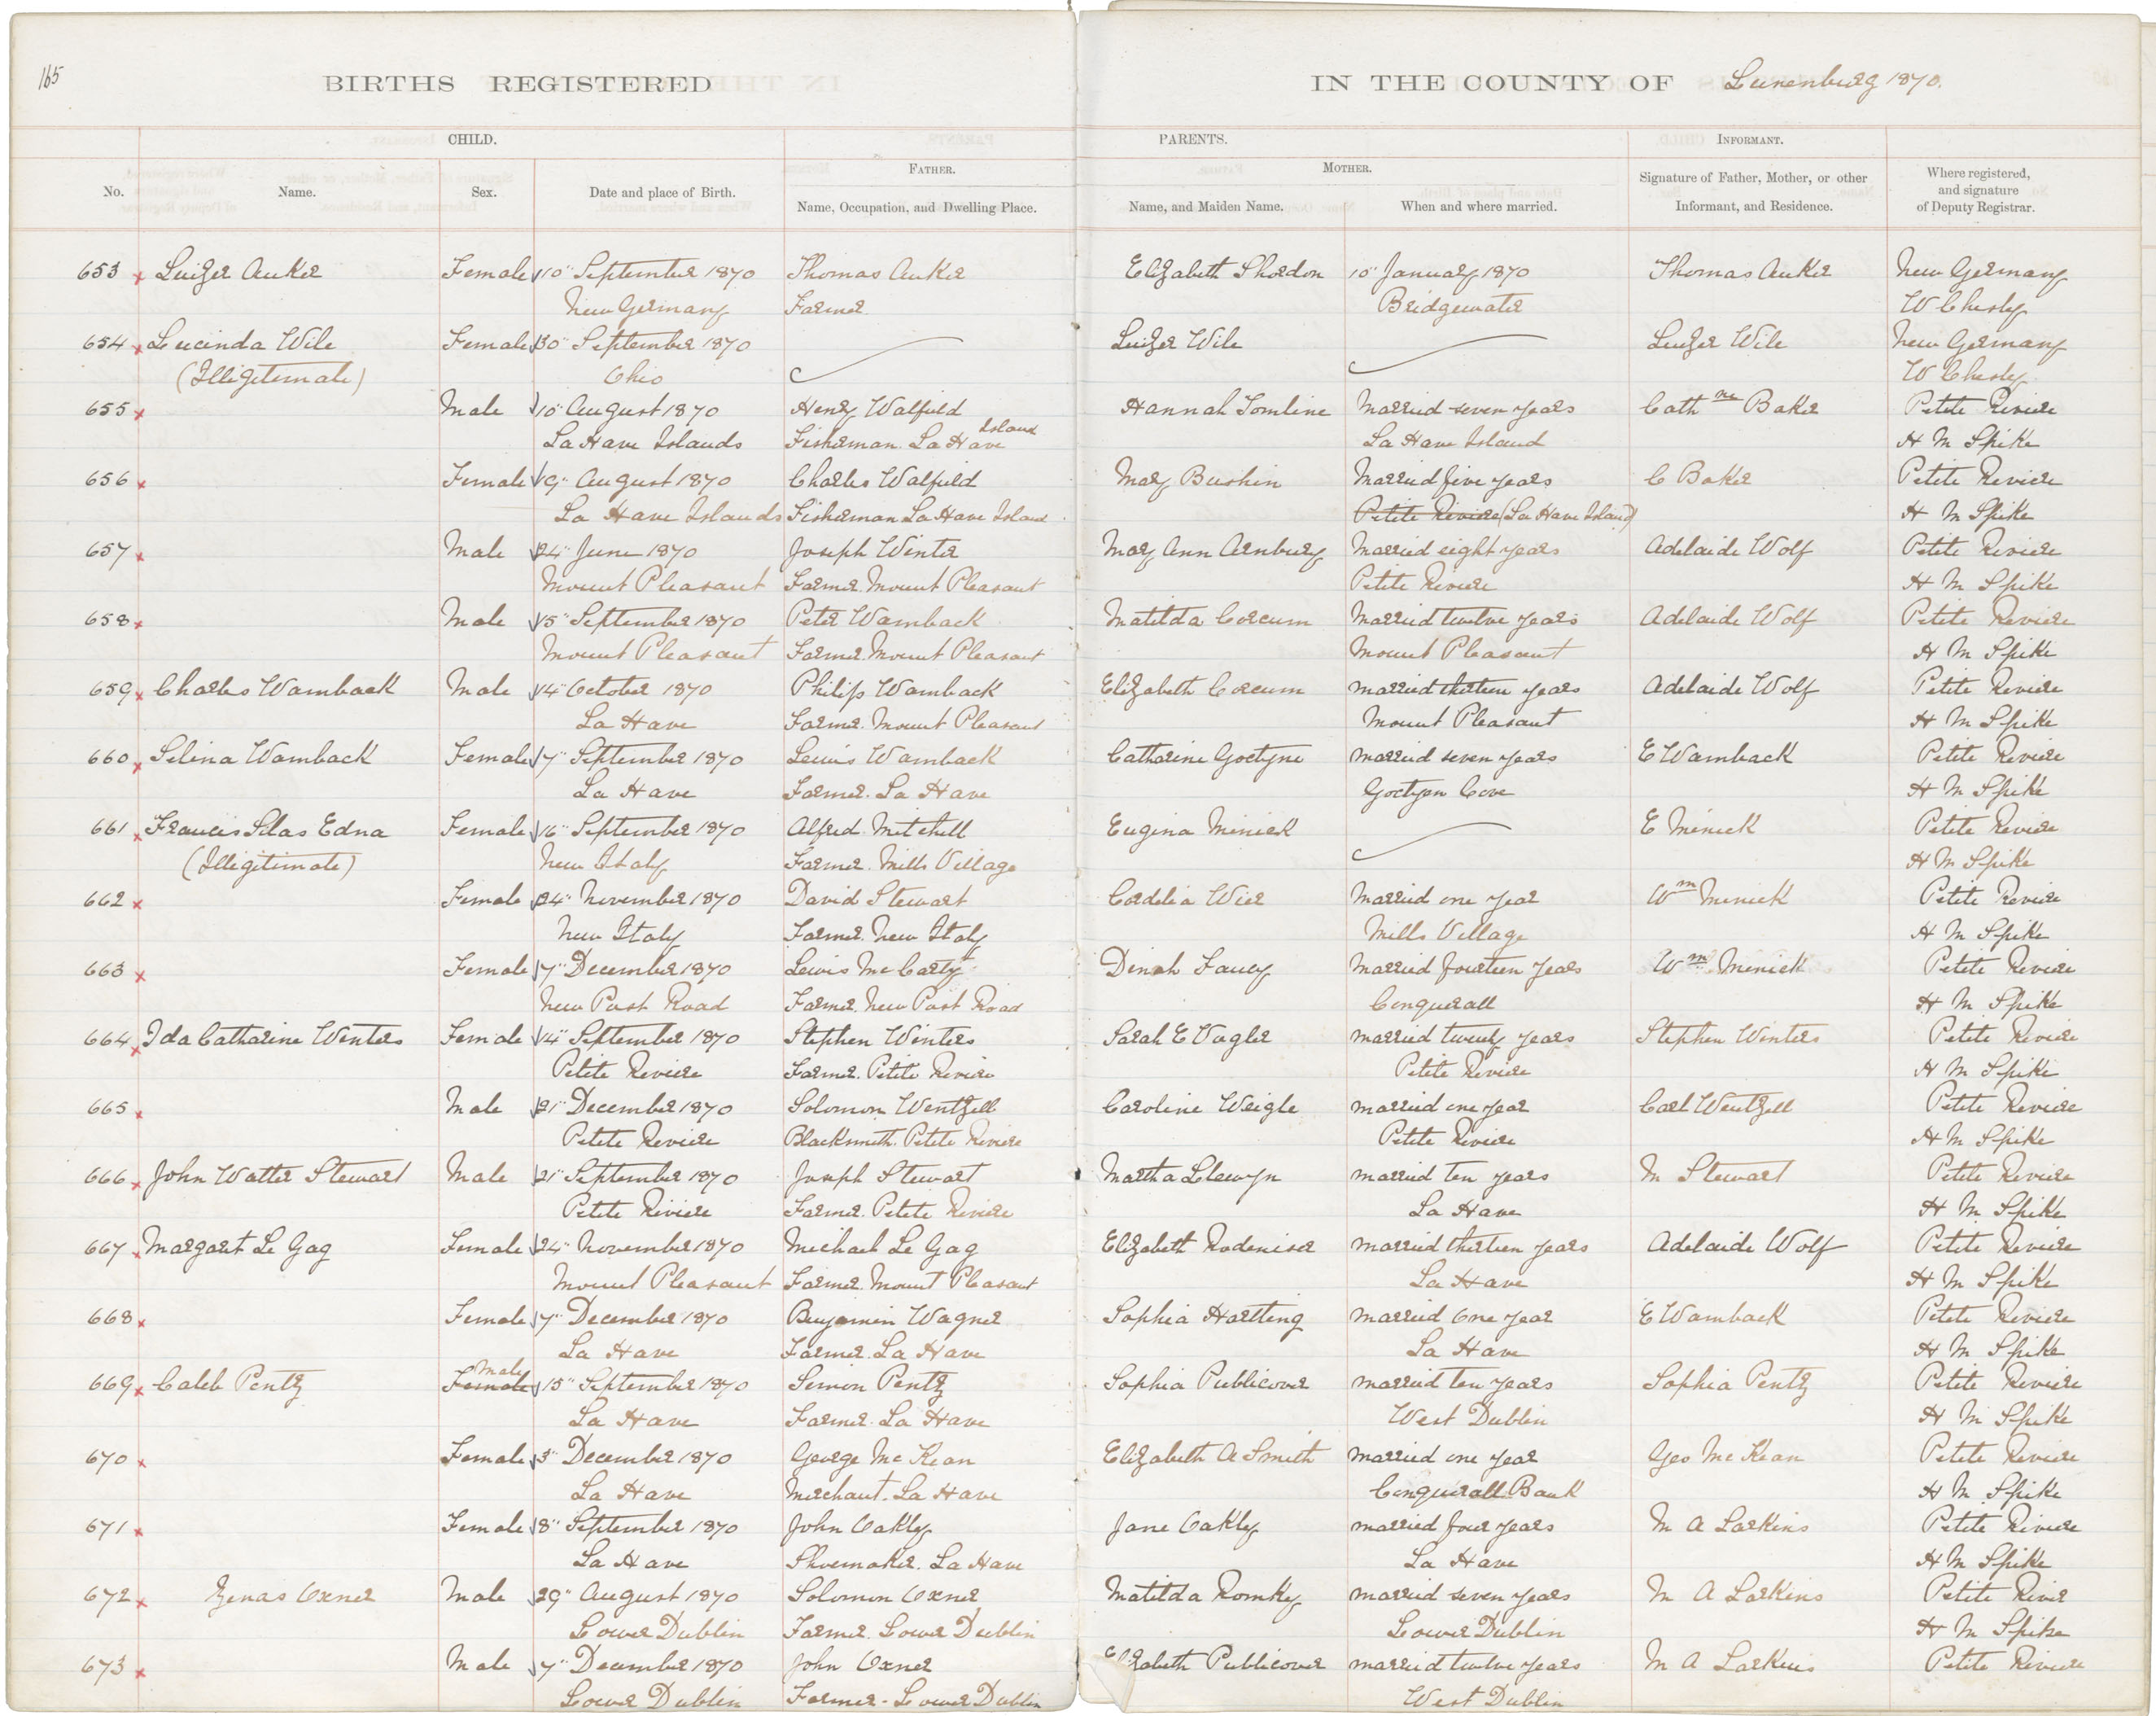 165
BIRTHS REGISTERED IN THE COUNTY OF Lunenburg 1870.
CHILD. PARENTS. INFORMANT.
FATHER. MOTHER.
No. Name. Sex. Date and place of Birth. Name, Occupation, and Dwelling Place. Name, and Maiden Name. When and where married. Signature of Father, Mother, or other Informant, and Residence. Where registered, and signature of Deputy Registrar.
653 x Luizer Auker Female 10" September 1870 Thomas Auker Elizabeth Shordon 10" January 1870 Thomas Auker New Germany
New Germany Farmer Bridgewater W Chesley
654 x Lucinda Wile Female 30" September 1870 Luizer Wile Luizer Wile New Germany
(Illigitemate) Ohio W Chesley
655 x Male 10" August 1870 Henry Walfield Hannah Tomline Married seven years Cath ne Baker Petite Reviere
La Have Islands Fisherman. La Have Island La Have Island H M Spike
656 x Female 9" August 1870 Charles Walfield Mary Bushin Married five years C Baker Petite Reviere
La Have Islands Fisherman La Have Island Petite Reviere (La Have Island) H M Spike
657 x Male 24" June 1870 Joseph Winter Mary Ann Arnburg Married eight years Adelaide Wolf Petite Reviere
Mount Pleasant Farmer. Mount Pleasant Petite Reviere H M Spike
658 x Male 15" September 1870 Peter Wamback Matilda Corcum Married twelve years Adelaide Wolf Petite Reviere
Mount Pleasant Farmer. Mount Pleasant Mount Pleasant H M Spike
659 x Charles Wamback Male 14" October 1870 Philip Wamback Elizabeth Corcum married thirteen years Adelaide Wolf Petite Reviere
La Have Farmer. Mount Pleasant Mount Pleasant H M Spike
660 x Selina Wamback Female 7" September 1870 Lewis Wamback Catharine Goctyne married seven years E Wamback Petite Reviere
La Have Farmer. La Have Goctyon Cove H M Spike
661 x Francis Silas Edna Female 16" September 1870 Alfred Mitchell Eugina Minick E Minick Petite Reviere
(Illigitimate) New Italy Farmer. Mills Village H M Spike
662 x Female 24" November 1870 David Stewart Cordelia Wier Married one year Wm Minick Petite Reviere
New Italy Farmer. New Italy Mills Village H M Spike
663 x Female 7" December 1870 Lewis McCarty Dinah Fancy Married fourteen years Wm Minick Petite Reviere
New Post Road Farmer. New Post Road Conquerall H M Spike
664 x Ida Catharine Winters Female 14" September 1870 Stephen Winters Sarah E Vogler married twenty years Stephen Winters Petite Reviere
Petite Reviere Farmer. Petite Reviere Petite Reviere H M Spike
665 x Male 21" December 1870 Solomon Wentzell Caroline Weigle married one year Carl Wentzell Petite Reviere
Petite Reviere Blacksmith. Petite Reviere Petite Reviere H M Spike
666 x John Walter Stewart Male 21" September 1870 Joseph Stewart Martha Llewyn married ten years M Stewart Petite Reviere
Petite Riviere Farmer. Petite Reviere La Have H M Spike
667 x Margaret Le Gag Female 24" November 1870 Michael Le Gag Elizabeth Rodeniser married thirteen years Adelaide Wolf Petite Reviere
Mount Pleasant Farmer. Mount Pleasant La Have H M Spike
668 x Female 7" December 1870 Benjamin Wagner Sophia Hartling married one year E Wamback Petite Reviere
La Have Farmer. La Have La Have H M Spike
669 x Caleb Pentz Female Male 15" September 1870 Simon Pentz Sophia Publicover married ten years Sophia Pentz Petite Reviere
La Have Farmer. La Have West Dublin H M Spike
670 x Female 3" December 1870 George McKean Elizabeth A Smith married one year Geo McKean Petite Reviere
La Have Merchant. La Have Conquerall Bank H M Spike
671 x Female 8" September 1870 John Oakley Jane Oakley married four years M A Larkins Petite Riviere
La Have Shoemaker. La Have La Have H M Spike
672 x Zenas Oxner Male 29" August 1870 Solomon Oxner Matilda Romkey married seven years M A Larkins Petite River
Lower Dublin Farmer. Lower Dublin Lower Dublin H M Spike
673 x Male 7" December 1870 John Oxner Elizabeth Publicover married twelve years M A Larkins Petite Riviere
Lower Dublin Farmer - Lower Dublin West Dublin